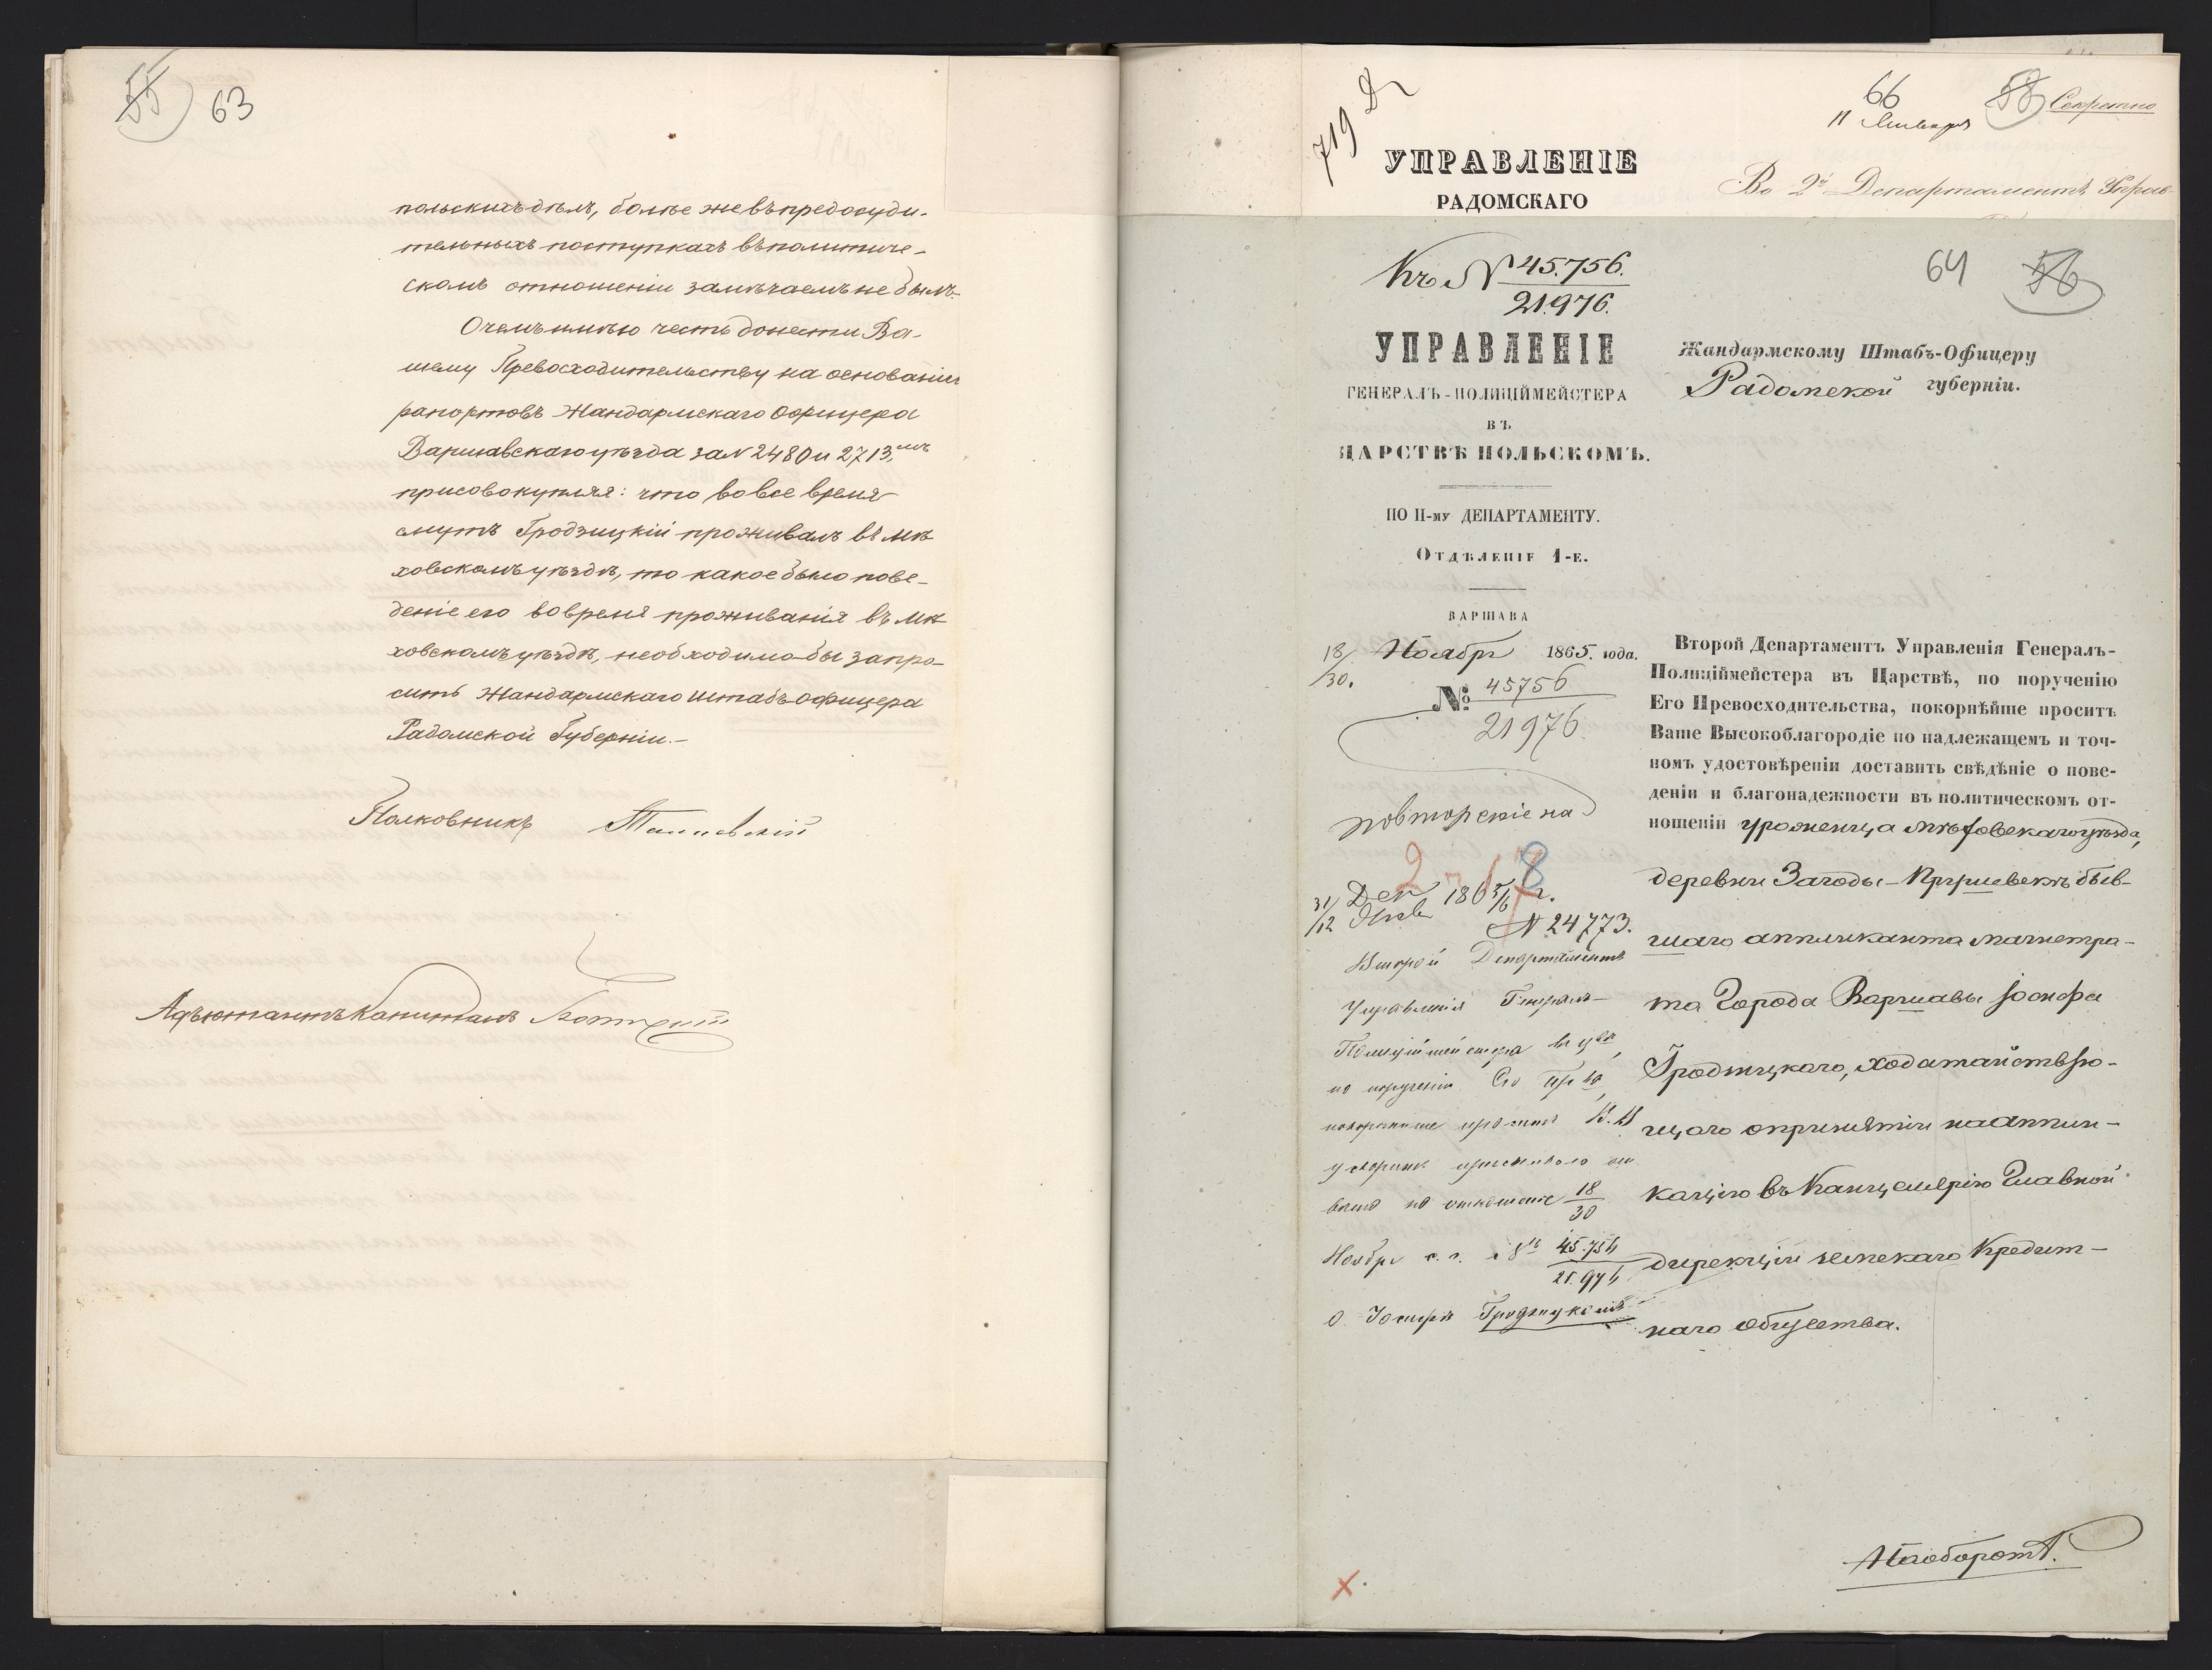 55 63
польскихъ дѣлъ, болѣе же въ предосуди-
тельныхъ поступкахъ въ политиче-
скомъ отношеніи замѣчаемъ не былъ.
О чемъ имѣю честь донести Ва-
шему Превосходительству на основаніи
рапортовъ Жандармскаго Офицера
Варшавскаго уѣзда за N 2480 и 2713,мъ
присовокупляя: что во все время
смутъ Гродзицкій проживалъ въ Мѣ-
ховскомъ уѣздѣ, то какое было пове-
деніе его во время проживанія въ Мѣ-
ховскомъ уѣздѣ, необходимо-бы запро-
сить Жандармскаго Штабъ-офицера
Радомской Губерніи.-
Полковникъ
Адъютантъ Капитанъ
719
66
11 Января
58 Секретно
УПРАВЛЕНІЕ
РАДОМСКАГО
Во 2й Департаментъ Управ-
Къ N 45.756.
21.976.
64 56
УПРАВЛЕНІЕ
ГЕНЕРАЛЪ-ПОЛИЦІЙМЕЙСТЕРА
ВЪ
ЦАРСТВѢ ПОЛЬСКОМЪ.
ПО II-му ДЕПАРТАМЕНТУ.
Отдѣленіе 1-е.
ВАРШАВА
18/30. Ноября 1865. года.
№ 45756
21976
Жандармскому Штабъ-Офицеру
Радомской губерніи.
Второй Департаментъ Управленія Генералъ-
Полиціймейстера въ Царствѣ, по порученію
Его Превосходительства, покорнѣйше проситъ
Ваше Высокоблагородіе по надлежащемъ и точ-
номъ удостовѣреніи доставить свѣдѣніе о пове-
деніи и благонадежности въ политическомъ от-
ношеніи уроженца Мѣховскаго уѣзда,
деревни Загоды-Пршевекъ быв-
шаго аппликанта Магистра-
та Города Варшавы Іосифа
Гродзицкаго, ходатайствую-
щаго о принятіи на аппли-
кацію въ Канцелярію Главной
дирекціи земскаго Кредит-
наго общества.
повтореніе на
2 18
31/12 Дек/Янв 1865/6 г.
N 24773.
Второй Департаментъ
Управленія Генералъ-
Полиціймейстера въ Цвѣ,
по порученію Его Пр-ва,
покорнѣйше проситъ В. В.
ускорить присылкою от
вѣта на отношеніе 18/30
Ноября с. г. за № 45.756
21.976
о Іосифѣ Гродзицкомъ
Наоборотѣ.